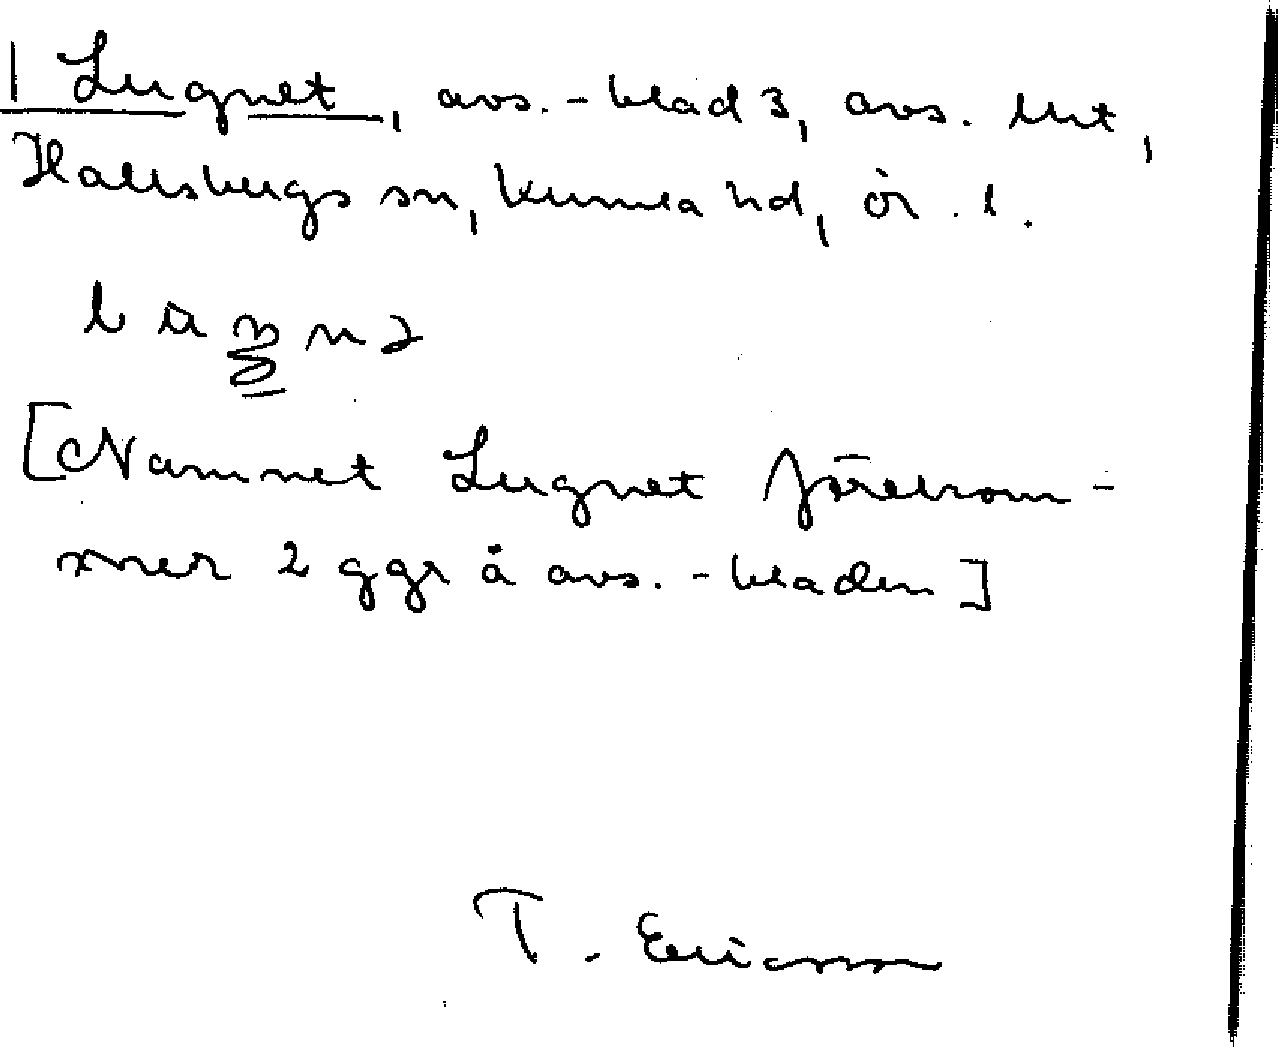 1 Lugnet, avs.-blad 3, avs. lht,
Hallsbergs sn, Kumla hd, ör. l.
[Namnet Lugnet förekom-
mer 2 ggr å avs.-bladen]
T. Ericsson